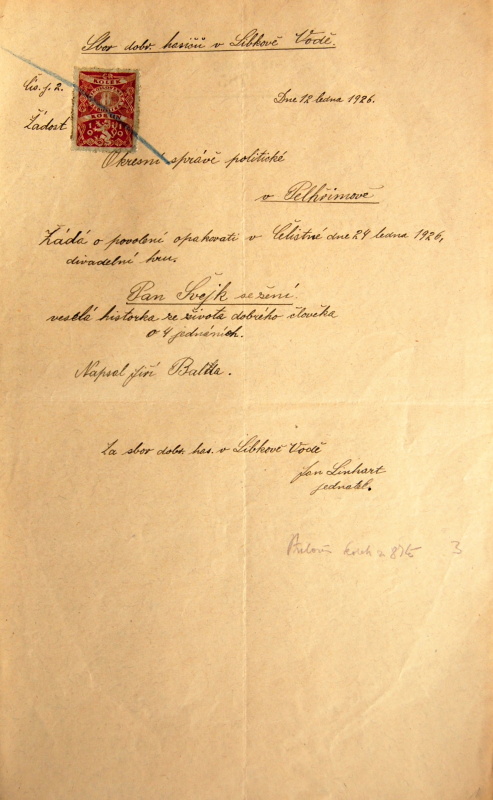 Sbor dobr. hasičů v Libkově Vodě.
Čís. j. 2.
Dne 12 ledna 1926.
Žádost
KOLEK
Okresní správě politické
v Pelhřimově
Žádá o povolení opakovati v Čelistné dne 24 ledna 1926,
divadelní hru.
Pan Švejk se žení
veselá historka ze života dobrého člověka
o 4 jednáních.
Napsal Jiří Balda.
Za sbor dobr. has. v Libkově Vodě
Jan Linhart
jednatel.
kolek 3